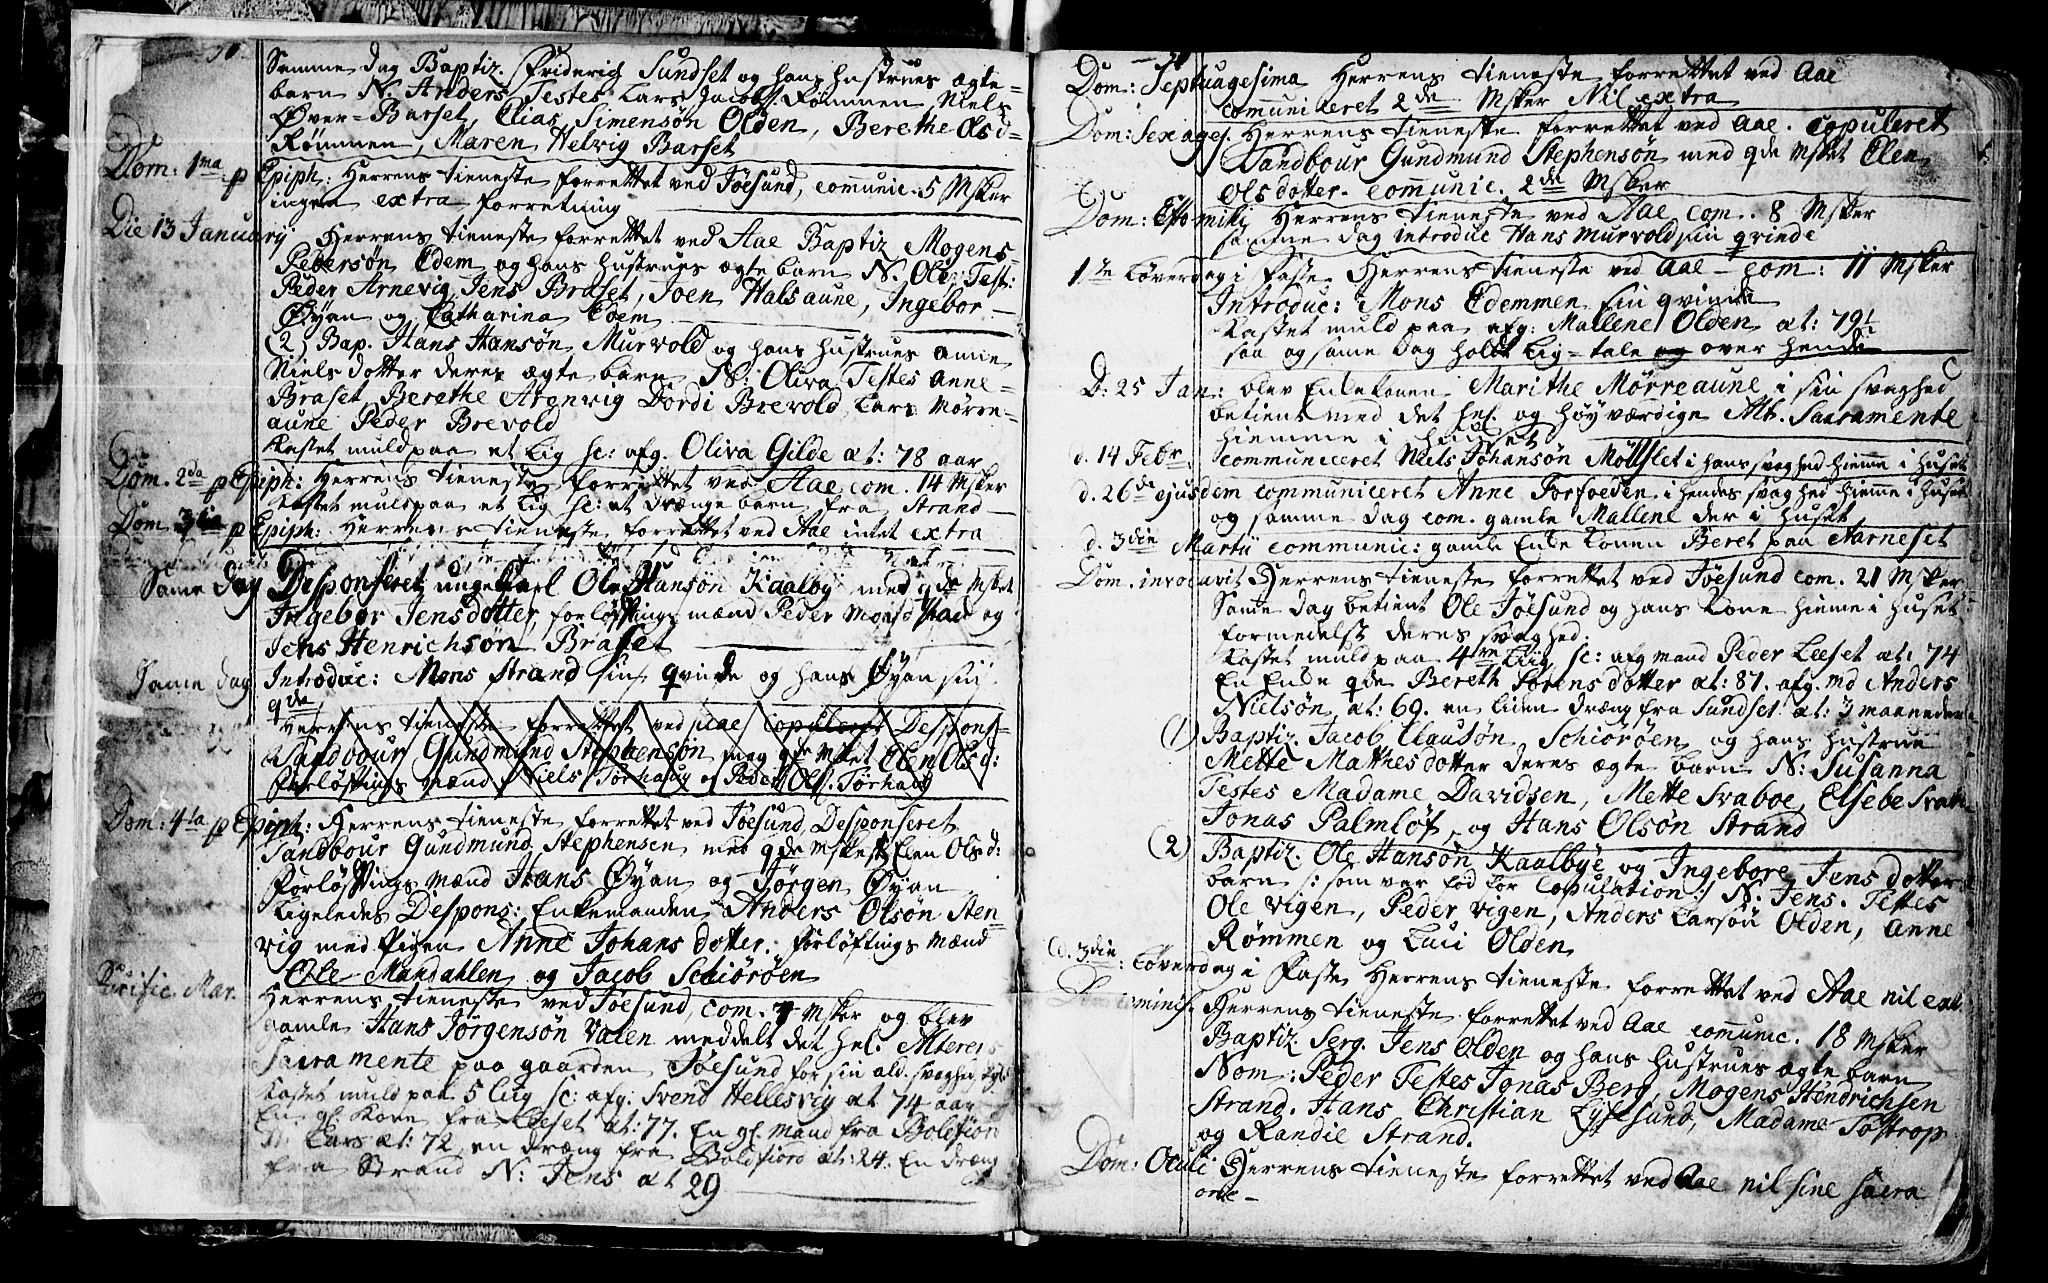 Samme dag Baptiz. Friderich Sundset og hans hustrues ægte-
barn N. Anders Testes Lars Jacobs. Rømmen, Niels
Øver-Barset, Elias Simensøn Olden, Berethe Ols d-
Rømmen, Maren Helvig Barset
Dom: 1ma p Epiph: Herrens tieneste forrettet ved Jøesund, communic. 5 Msker
ingen extra forretning
Die 13 January Herrens tieneste forrettet ved Aae Baptiz Mogens
Pedersøn Edem og hans hustrues ægte barn N. Ole, Test:
Peder Arnevig, Jens Braset, Joen Halsaune, Ingebor
Øyan og Catharina Edem
(2) Bap. Hans Hansøn Murvold og hans hustrues Anne
Niels dotter deres ægte barn N: Oliva Testes Anne
Braset, Berethe Arenvig Dordi Brevold, Lars Mørre-
aune Peder Brevold
Kastet muld paa et lig sc: afg. Oliva Gilde æt: 78 aar
Dom. 2da p Epiph: Herrens tieneste forrettet ved Aae com. 14 Msker
Kastet muld paa et lig sc: et drænge barn fra Strand
Dom 3tia p Epiph: Herrens tieneste forrettet ved Aae intet extra
Same dag Desponseret unge Karl Ole Hansøn Kaalby med qde Msket
Ingebor Jensdotter, forløftnings mænd Peder og
Jens Henrichsøn Braset
Same dag Introduc: Mons Strand sin qvinde og hans Øyan sin
qde
Herrens tieneste forrettet ved Aae Copuleret Despons-
Landbour Gundmund Stephensøn med qde Msket Elen Ols d:
Forløftnings mænd Niels Tørhaug og Peder Ols. Tørhaug
Dom: 4ta p Epiph: Herrens tieneste forrettet ved Jøesund, Desponseret
Landbour Gundmund Stephensen med qde Msket Elen Ols d:
Forløftnings mænd Hans Øyan og Jørgen Øyan
Ligeledes Despons: Enkemanden Anders Olsøn Sten
vig med Pigen Anne Johans dotter. Forløftnings mænd
Ole Mandahlen og Jacob Schiørøen
Purific. Mar. Herrens tieneste ved Jøesund, com. 7 Msker og blev
gamle Hans Jørgensøn Valen meddelt det hel. Alterens
Sacramente paa gaarden Jøesund for sin ald. svaghed
Kastet muld paa 5 Liig sc: afg. Svend Hellesvig æt 74 aar
En gl. Kone fra Leeset æt: 77. En gl. mand fra Bolefiord
N. Lars æt: 72, en dræng fra Bolefiord æt: 24. En dræng
fra Strand N: Jens æt 29
Dom: Septuagesima Herrens tieneste forrettet ved Aae
communiceret 2de Msker Nil extra
Dom: Sexages. Herrens tieneste forrettet ved Aae. Copuleret
Landbour Gundmund Stephensøn med qde Msket Elen
Olsdotter. communic. 2de Msker
Dom: Esto mihi Herrens tieneste ved Aae com. 8 Msker
samme dag introduc Hans Murvold sin qvinde
1ste Løverdag i faste Herrens tieneste ved Aae - com: 11 Msker
Introduc: Mons Edemmen sin qvinde
Kastet muld paa afg: Mallene Olden æt: 79½
saa og same dag holdt Lig-tale og over hende
D: 25 Jan: blev Enkekonen Marithe Mørreaune i sin svaghed
betient med det hel. og høyværdige Alt. Sacramente
hiemme i huuset
d. 14 Febr. communiceret Niels Johansøn Møllslet i hans svaghed hiemme i huset
d. 26de ejusdem communiceret Anne Forfoeden i hendes svaghed hiemme i huset
og samme dag com. gamle Mallene der i huset
d. 3die Martii communic: gamle Enke konen Beret paa Aarneset
Dom. invocavit Herrens tieneste forrettet ved Jøesund com. 21 Msker
Same dag betient Ole Jøesund og hans kone hieme i huset
formedelst deres svaghed:
Kastet muld paa 4re Liig, sc: afg mand Peder Leeset æt: 74
En Enke qde Bereth Sørens dotter æt: 87. afg. md Anders
Nielsøn æt: 69. en liden dræng fra Sundset æt: 3 maaneder
(1) Baptiz. Jacob Clausøn Schiørøen og hans hustrue
Mette Matthesdotter deres ægte barn N: Susanna
Testes Madame Davidsen, Mette Svaboe, Elsebe
Jonas Palmløf, og Hans Olsøn Strand
(2) Baptiz. Ole Hansøn Kaalbye og Ingebore Jens dotter
barn /: som var fød før Copulation :/ N. Jens. Testes
Ole Vigen, Peder Vigen, Anders Larsøn Olden, Anne
Rømmen og Luci Olden
d. 3die: Løverdag i Faste Herrens tieneste forrettet ved Aae nil ext.
Dom Reminis. Herrens tieneste forrettet ved Aae communic. 18 Msker
Baptiz. Serg. Jens Olden og hans hustrues ægte barn
Nom: Peder Testes Jonas Berg, Mogens Hendrichsen
Strand. Hans Christian Lysesund, Madame Tostrop
og Randie Strand.
Dom: Oculi Herrens tieneste forrettet ved Aae nil sine sacra
one-